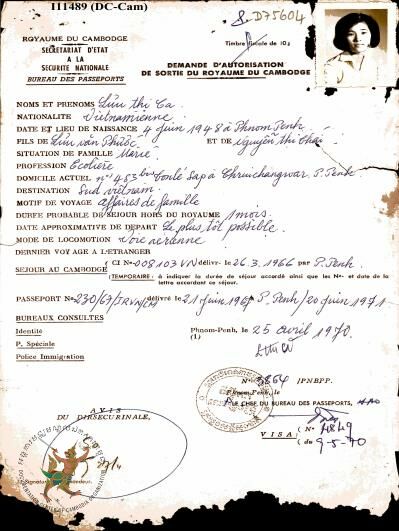 111489 (DC-Cam)
D75604
ROYAUME DU CAMBODGE
SECRETARIAT D'ETAT
A LA
SECURITE NATIONALE
BUREAU DES PASSEPORTS
Timbre fiscale de 10
DEMANDE D'AUTORISATION
DE SORTIE DU ROYAUME DU CAMBODGE
NOMS ET PRENOMS Lưu thị Ca
NATIONALITE Vietnamienne
DATE ET LIEU DE NAISSANCE 4 juin 1948 à Phnom Penh
FILS DE Lưu văn Phước ET DE Nguyễn thị Chải
SITUATION DE FAMILLE Marié
PROFESSION Ecolière
DOMICILE ACTUEL n° 453 bis Tonlé Sap à Chruichangwar P. Penh
DESTINATION Sud Vietnam
MOTIF DE VOYAGE affaires de famille
DUREE PROBABLE DE SEJOUR HORS DU ROYAUME 1 mois
DATE APPROXIMATIVE DE DEPART Le plus tôt possible
MODE DE LOCOMOTION Voie aérienne
DERNIER VOYAGE A L'ETRANGER
SEJOUR AU CAMBODGE (CI No 008103 VN délivr. le 26.3.1966 par P. Penh
(TEMPORAIRE: à indiquer la durée de séjour accordé ainsi que les No- et date de la lettre accordant ce séjour.
PASSEPORT No 230/67/TRVN/CM délivré le 21 juin 1967 P. Penh/20 juin 1971
BUREAUX CONSULTES
Identité
Phnom-Penh, le 25 avril 1970
P. Spéciale
(1)
Police Immigration
No 3864 /PNBFP.
Phnom-Penh, le
AVIS
DU DIRSECURINALE.
LE CHEF DU BUREAU DES PASSEPORTS,
VISA (No 4849
(du 9-5-70
DOCUMENTATION CENTER OF CAMBODIA